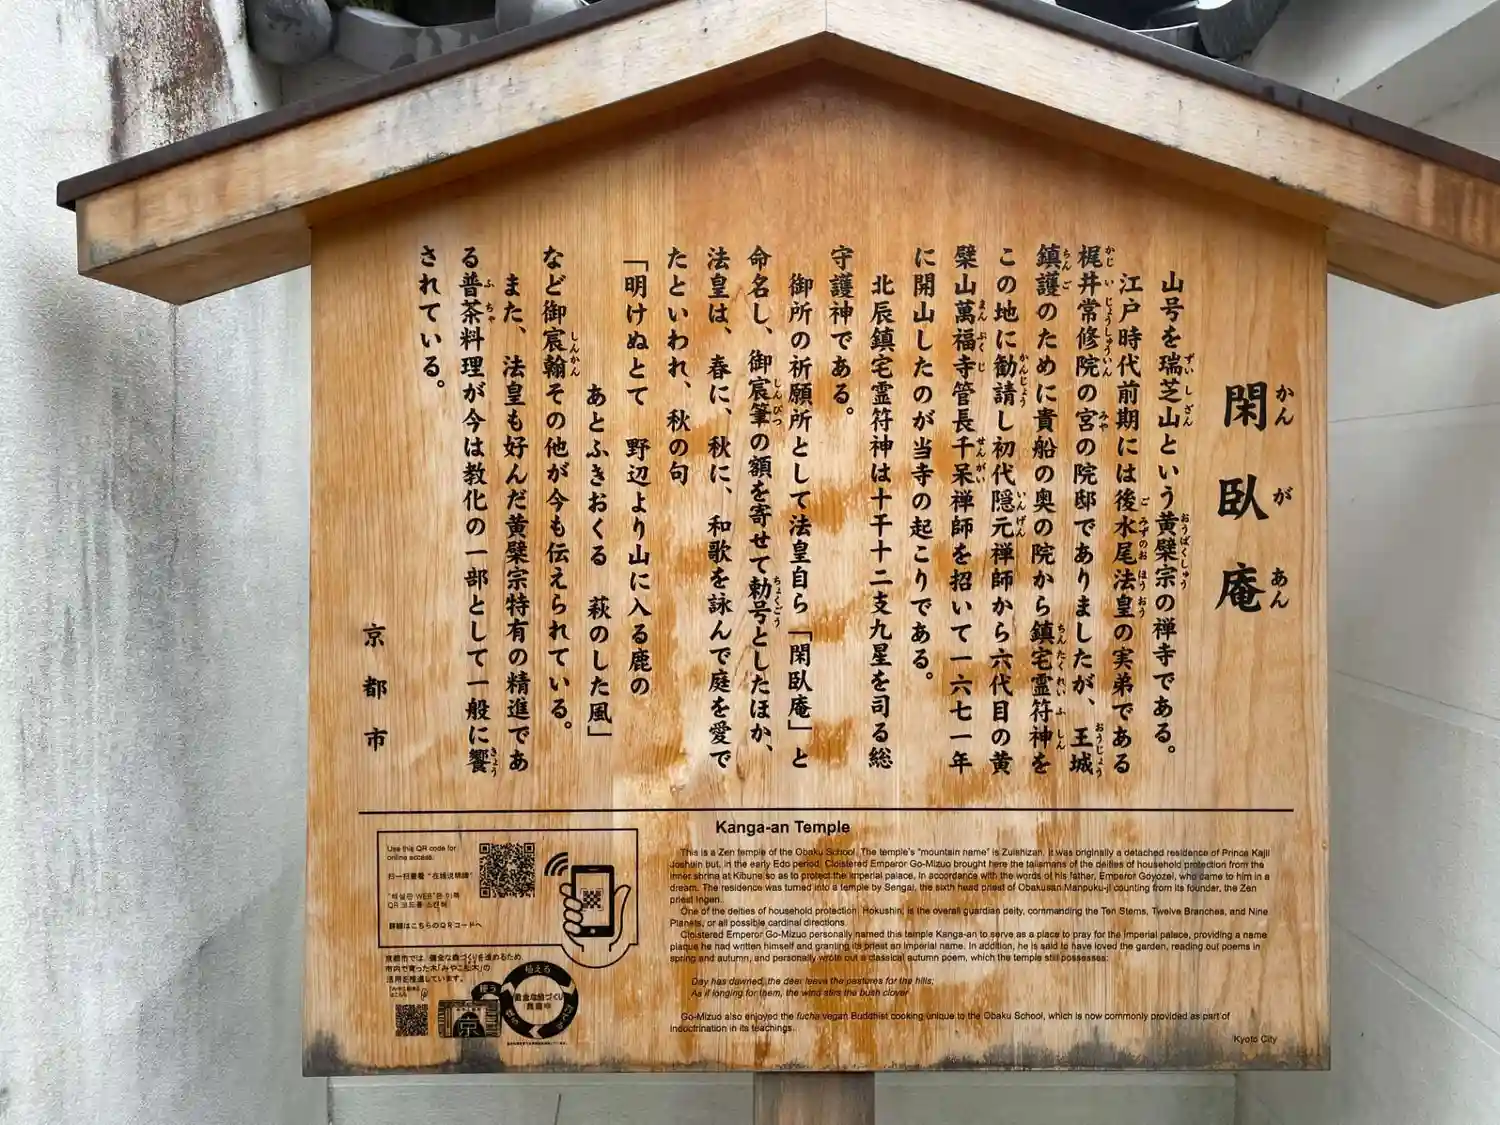 閑臥庵
かんがあん
山号を瑞芝山という黄檗宗の禅寺である。
江戸時代前期には後水尾法皇の実弟である
梶井常修院の宮の院邸でありましたが、王城
鎮護のために貴船の奥の院から鎮宅霊符神を
この地に勧請し初代隠元禅師から六代目の黄
檗山萬福寺管長千呆禅師を招いて一六七一年
に開山したのが当寺の起こりである。
北辰鎮宅霊符神は十干十二支九星を司る総
守護神である。
御所の祈願所として法皇自ら「閑臥庵」と
命名し、御宸筆の額を寄せて勅号としたほか、
法皇は、春に、秋に、和歌を詠んで庭を愛で
たといわれ、秋の句
「明けぬとて 野辺より山に入る鹿の
あとふきおくる 萩のした風」
など御宸翰その他が今も伝えられている。
また、法皇も好んだ黄檗宗特有の精進であ
る普茶料理が今は教化の一部として一般に饗
されている。
京都市
Kanga-an Temple
This is a Zen temple of the Obaku School. The temple's "mountain name" is Zuishizan. It was originally a detached residence of Prince Kajii
Joshuin but, in the early Edo period, Cloistered Emperor Go-Mizuo brought here the talismans of the deities of household protection from the
inner shrine at Kibune so as to protect the imperial palace, in accordance with the words of his father, Emperor Goyozei, who came to him in a
dream. The residence was turned into a temple by Sengai, the sixth head priest of Obakusan Manpuku-ji counting from its founder, the Zen
priest Ingen.
One of the deities of household protection, Hokushin, is the overall guardian deity, commanding the Ten Stems, Twelve Branches, and Nine
Planets, or all possible cardinal directions.
Cloistered Emperor Go-Mizuo personally named this temple Kanga-an to serve as a place to pray for the imperial palace, providing a name
plaque he had written himself and granting its priest an imperial name. In addition, he is said to have loved the garden, reading out poems in
spring and autumn, and personally wrote out a classical autumn poem, which the temple still possesses:
Day has dawned, the deer leave the pastures for the hills;
As if longing for them, the wind stirs the bush clover
Go-Mizuo also enjoyed the fucha vegan Buddhist cooking unique to the Obaku School, which is now commonly provided as part of
indoctrination in its teachings.
Kyoto City
Use this QR code for
online access.
扫一扫查看 "在线说明牌"
"해설판 WEB"판 이쪽
QR 코드를 스캔해
詳細はこちらのQRコードへ
京都市では、健全な森づくりを進めるため、
市内で育った木「みやこ杣木」の
活用を推進しています。
植える
使う